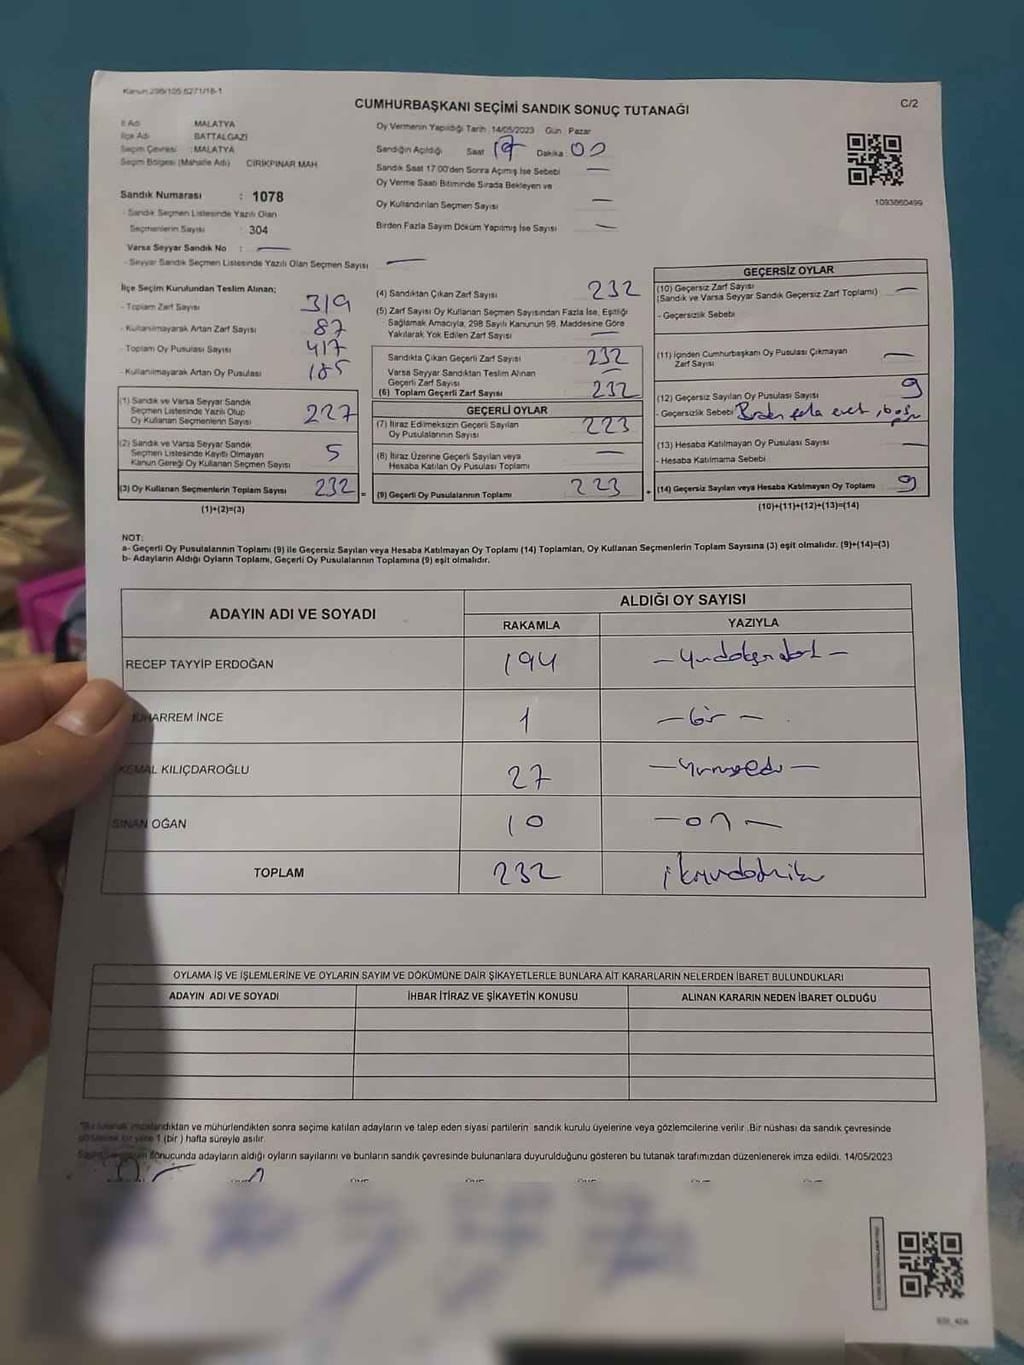 Kanun:298/105 6271/18-1
CUMHURBAŞKANI SEÇİMİ SANDIK SONUÇ TUTANAĞI
C/2
İl Adı MALATYA
İlçe Adı BATTALGAZİ
Seçim Çevresi : MALATYA
Seçim Bölgesi (Mahalle Adı) CİRİKPINAR MAH
Sandık Numarası : 1078
- Sandık Seçmen Listesinde Yazılı Olan
Seçmenlerin Sayısı : 304
Varsa Seyyar Sandık No :
- Seyyar Sandık Seçmen Listesinde Yazılı Olan Seçmen Sayısı
Oy Vermenin Yapıldığı Tarih :14/05/2023 Gün Pazar
Sandığın Açıldığı Saat 17 Dakika : 00
Sandık Saat 17:00'den Sonra Açılmış İse Sebebi
Oy Verme Saati Bitiminde Sırada Bekleyen ve
Oy Kullandırılan Seçmen Sayısı
Birden Fazla Sayım Döküm Yapılmış İse Sayısı
1093860499
İlçe Seçim Kurulundan Teslim Alınan;
- Toplam Zarf Sayısı 319
- Kullanılmayarak Artan Zarf Sayısı 87
- Toplam Oy Pusulası Sayısı 417
- Kullanılmayarak Artan Oy Pusulası 185
(1) Sandık ve Varsa Seyyar Sandık
Seçmen Listesinde Yazılı Olup
Oy Kullanan Seçmenlerin Sayısı 227
(2) Sandık ve Varsa Seyyar Sandık
Seçmen Listesinde Kayıtlı Olmayan
Kanun Gereği Oy Kullanan Seçmen Sayısı 5
(3) Oy Kullanan Seçmenlerin Toplam Sayısı 232
(1)+(2)=(3)
(4) Sandıktan Çıkan Zarf Sayısı 232
(5) Zarf Sayısı Oy Kullanan Seçmen Sayısından Fazla İse, Eşitliği
Sağlamak Amacıyla, 298 Sayılı Kanunun 98. Maddesine Göre
Yakılarak Yok Edilen Zarf Sayısı
Sandıkta Çıkan Geçerli Zarf Sayısı 232
Varsa Seyyar Sandıktan Teslim Alınan
Geçerli Zarf Sayısı
(6) Toplam Geçerli Zarf Sayısı 232
GEÇERLİ OYLAR
(7) İtiraz Edilmeksizin Geçerli Sayılan
Oy Pusulalarının Sayısı 223
(8) İtiraz Üzerine Geçerli Sayılan veya
Hesaba Katılan Oy Pusulası Toplamı
= (9) Geçerli Oy Pusulalarının Toplamı 223 +
GEÇERSİZ OYLAR
(10) Geçersiz Zarf Sayısı
(Sandık ve Varsa Seyyar Sandık Geçersiz Zarf Toplamı)
- Geçersizlik Sebebi
(11) İçinden Cumhurbaşkanı Oy Pusulası Çıkmayan
Zarf Sayısı
(12) Geçersiz Sayılan Oy Pusulası Sayısı 9
- Geçersizlik Sebebi Birden fazla evet,
(13) Hesaba Katılmayan Oy Pusulası Sayısı
- Hesaba Katılmama Sebebi
(14) Geçersiz Sayılan veya Hesaba Katılmayan Oy Toplamı 9
(10)+(11)+(12)+(13)=(14)
NOT:
a- Geçerli Oy Pusulalarının Toplamı (9) ile Geçersiz Sayılan veya Hesaba Katılmayan Oy Toplamı (14) Toplamları, Oy Kullanan Seçmenlerin Toplam Sayısına (3) eşit olmalıdır. (9)+(14)=(3)
b- Adayların Aldığı Oyların Toplamı, Geçerli Oy Pusulalarının Toplamına (9) eşit olmalıdır.
ADAYIN ADI VE SOYADI
ALDIĞI OY SAYISI
RAKAMLA YAZIYLA
RECEP TAYYİP ERDOĞAN 194 – Yüzdoksandört –
MUHARREM İNCE 1 – bir –
KEMAL KILIÇDAROĞLU 27 – Yirmiyedi –
SİNAN OĞAN 10 – on –
TOPLAM 232 ikiyüzotuziki
OYLAMA İŞ VE İŞLEMLERİNE VE OYLARIN SAYIM VE DÖKÜMÜNE DAİR ŞİKAYETLERLE BUNLARA AİT KARARLARIN NELERDEN İBARET BULUNDUKLARI
ADAYIN ADI VE SOYADI İHBAR İTİRAZ VE ŞİKAYETİN KONUSU ALINAN KARARIN NEDEN İBARET OLDUĞU
*Bu tutanak imzalandıktan ve mühürlendikten sonra seçime katılan adayların ve talep eden siyasi partilerin sandık kurulu üyelerine veya gözlemcilerine verilir .Bir nüshası da sandık çevresinde
1 (bir ) hafta süreyle asılır.
sonucunda adayların aldığı oyların sayılarını ve bunların sandık çevresinde bulunanlara duyurulduğunu gösteren bu tutanak tarafımızdan düzenlenerek imza edildi. 14/05/2023